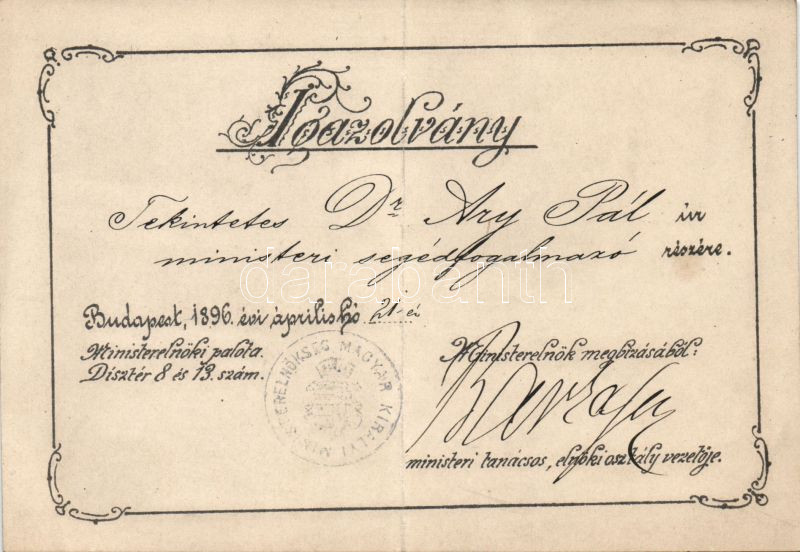 Igazolvány
Tekintetes Dr Ary Pál úr
ministeri segédfogalmazó részére.
Budapest, 1896. évi április hó 21-én
Ministerelnöki palota.
Disztér 8 és 13. szám.
Ministerelnök megbizásából:
ministeri tanácsos, elnöki osztály vezetője.
MAGYAR KIRÁLYI MINISTERELNÖKSÉG
darabanth